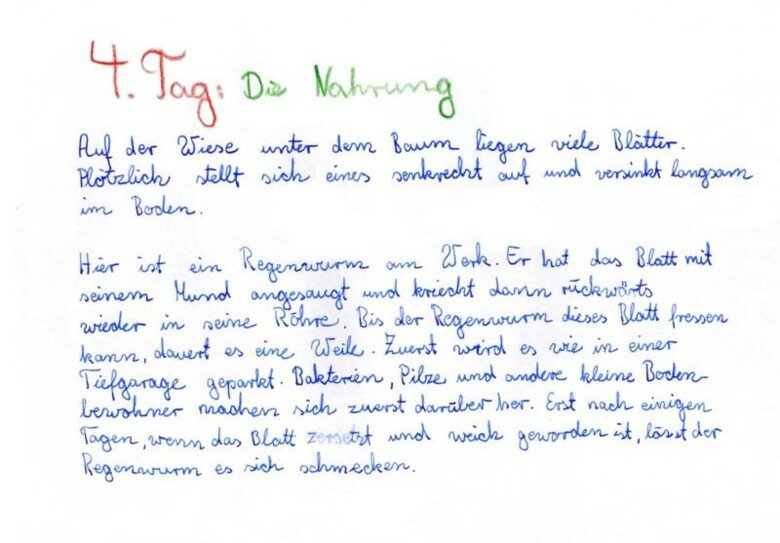 4. Tag: Die Nahrung
Auf der Wiese unter dem Baum liegen viele Blätter.
Plötzlich stellt sich eines senkrecht auf und versinkt langsam
im Boden.
Hier ist ein Regenwurm am Werk. Er hat das Blatt mit
seinem Mund angesaugt und kriecht dann rückwärts
wieder in seine Röhre. Bis der Regenwurm dieses Blatt fressen
kann, dauert es eine Weile. Zuerst wird es wie in einer
Tiefgarage geparkt. Bakterien, Pilze und andere kleine Boden-
bewohner machen sich zuerst darüber her. Erst nach einigen
Tagen, wenn das Blatt zersetzt und weich geworden ist, lässt der
Regenwurm es sich schmecken.